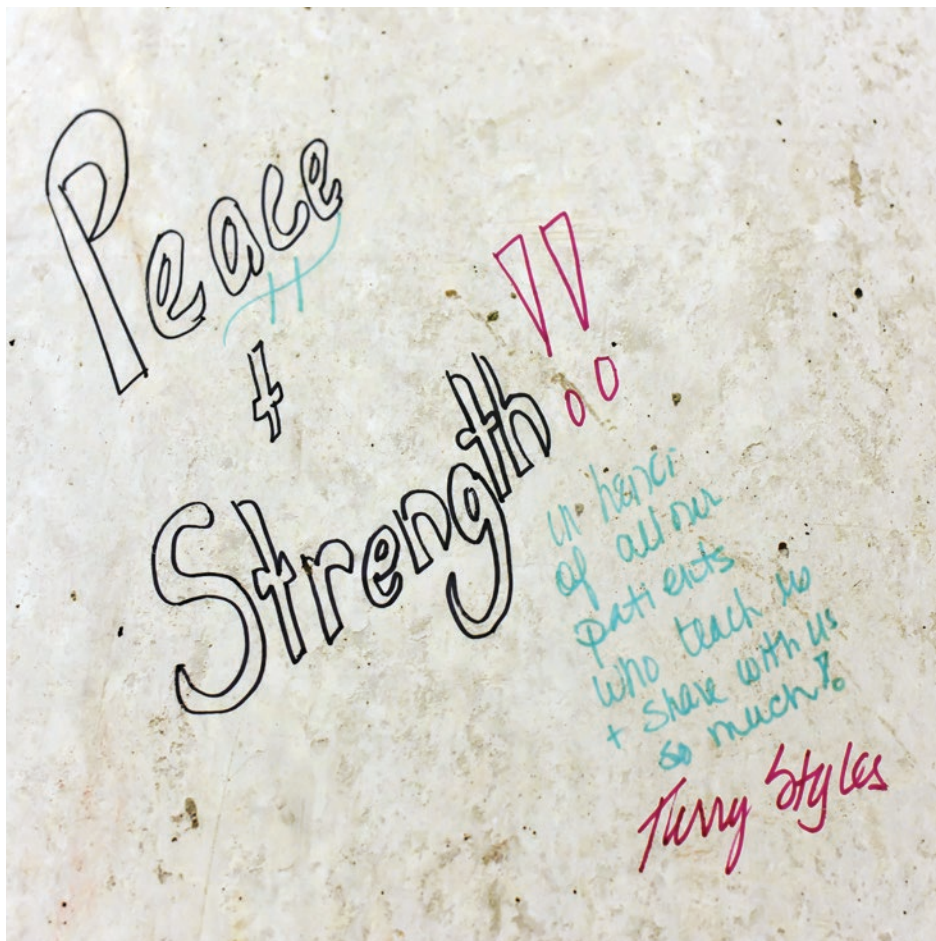 Peace
+
Strength!!
in honor
of all our
patients
who teach us
+ share with us
so much!
Terry Styles